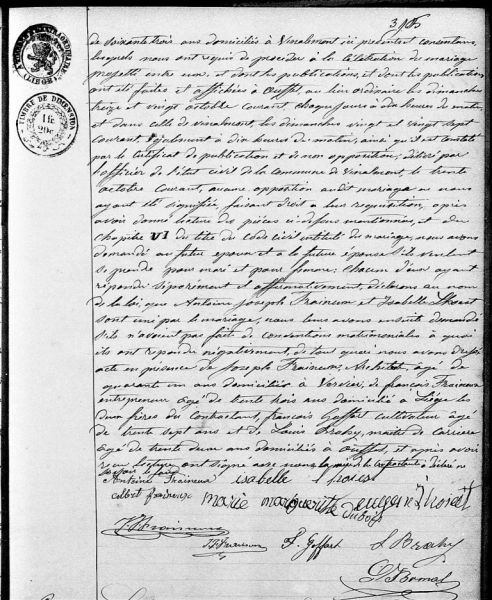 de soixante trois ans domiciliés à Vinalmont ici présents consentans,
lesquels nous ont requis de procéder à la célébration du mariage
projetté entre eux, et dont les publications, et dont les publications
ont été faites et affichées à Ouffet, au lieu ordinaire les dimanches
treize et vingt octobre courant, chaque jours à dix heures du matin,
et dans celle de Vinalmont, les dimanches vingt et vingt sept
courant, également à dix heures du matin, ainsi qu'il est constaté
par le certificat de publication et de non opposition, délivré par
l'officier de l'état civil de la commune de Vinalmont, le trente
octobre courant, aucune opposition audit mariage ne nous
ayant été signifiée, faisant droit à leur réquisition, après
avoir donné lecture des pièces ci-dessus mentionnées, et du
chapitre VI du titre du code civil intitulé du mariage, nous avons
demandé au futur epoux et à la future épouse s'ils veulent
se prendre pour mari et pour femme; chacun d'eux ayant
répondu séparément et affirmativement, déclarons au nom
de la loi, que Antoine Joseph Fraineux et Isabelle Thorat
sont unis par le mariage, nous leur avons ensuite demandé
s'ils n'avoient pas fait de conventions matrimoniales à quoi
ils ont répondu négativement, de tout quoi nous avons dressé
acte en présence de Joseph Fraineux, Architect, agé de
quarante un ans domicilié à Vervier, de françois Fraineux
entrepreneur agé de trente trois ans domicilié à Liège les
deux frères du contractant, françois Goffart cultivateur agé
de trente sept ans et de Louis Brahy, maître de carrière
agé de trente deux ans domiciliés à Ouffet, et après avoir
reçu lecture ont signé avec nous
Antoine Fraineux isabelle
albert fraineux marie marguerite dubois eugene Thorat
J. Fraineux
F. Goffart L Brahy
TIMBRE DE DIMENSION
1 fr
20c